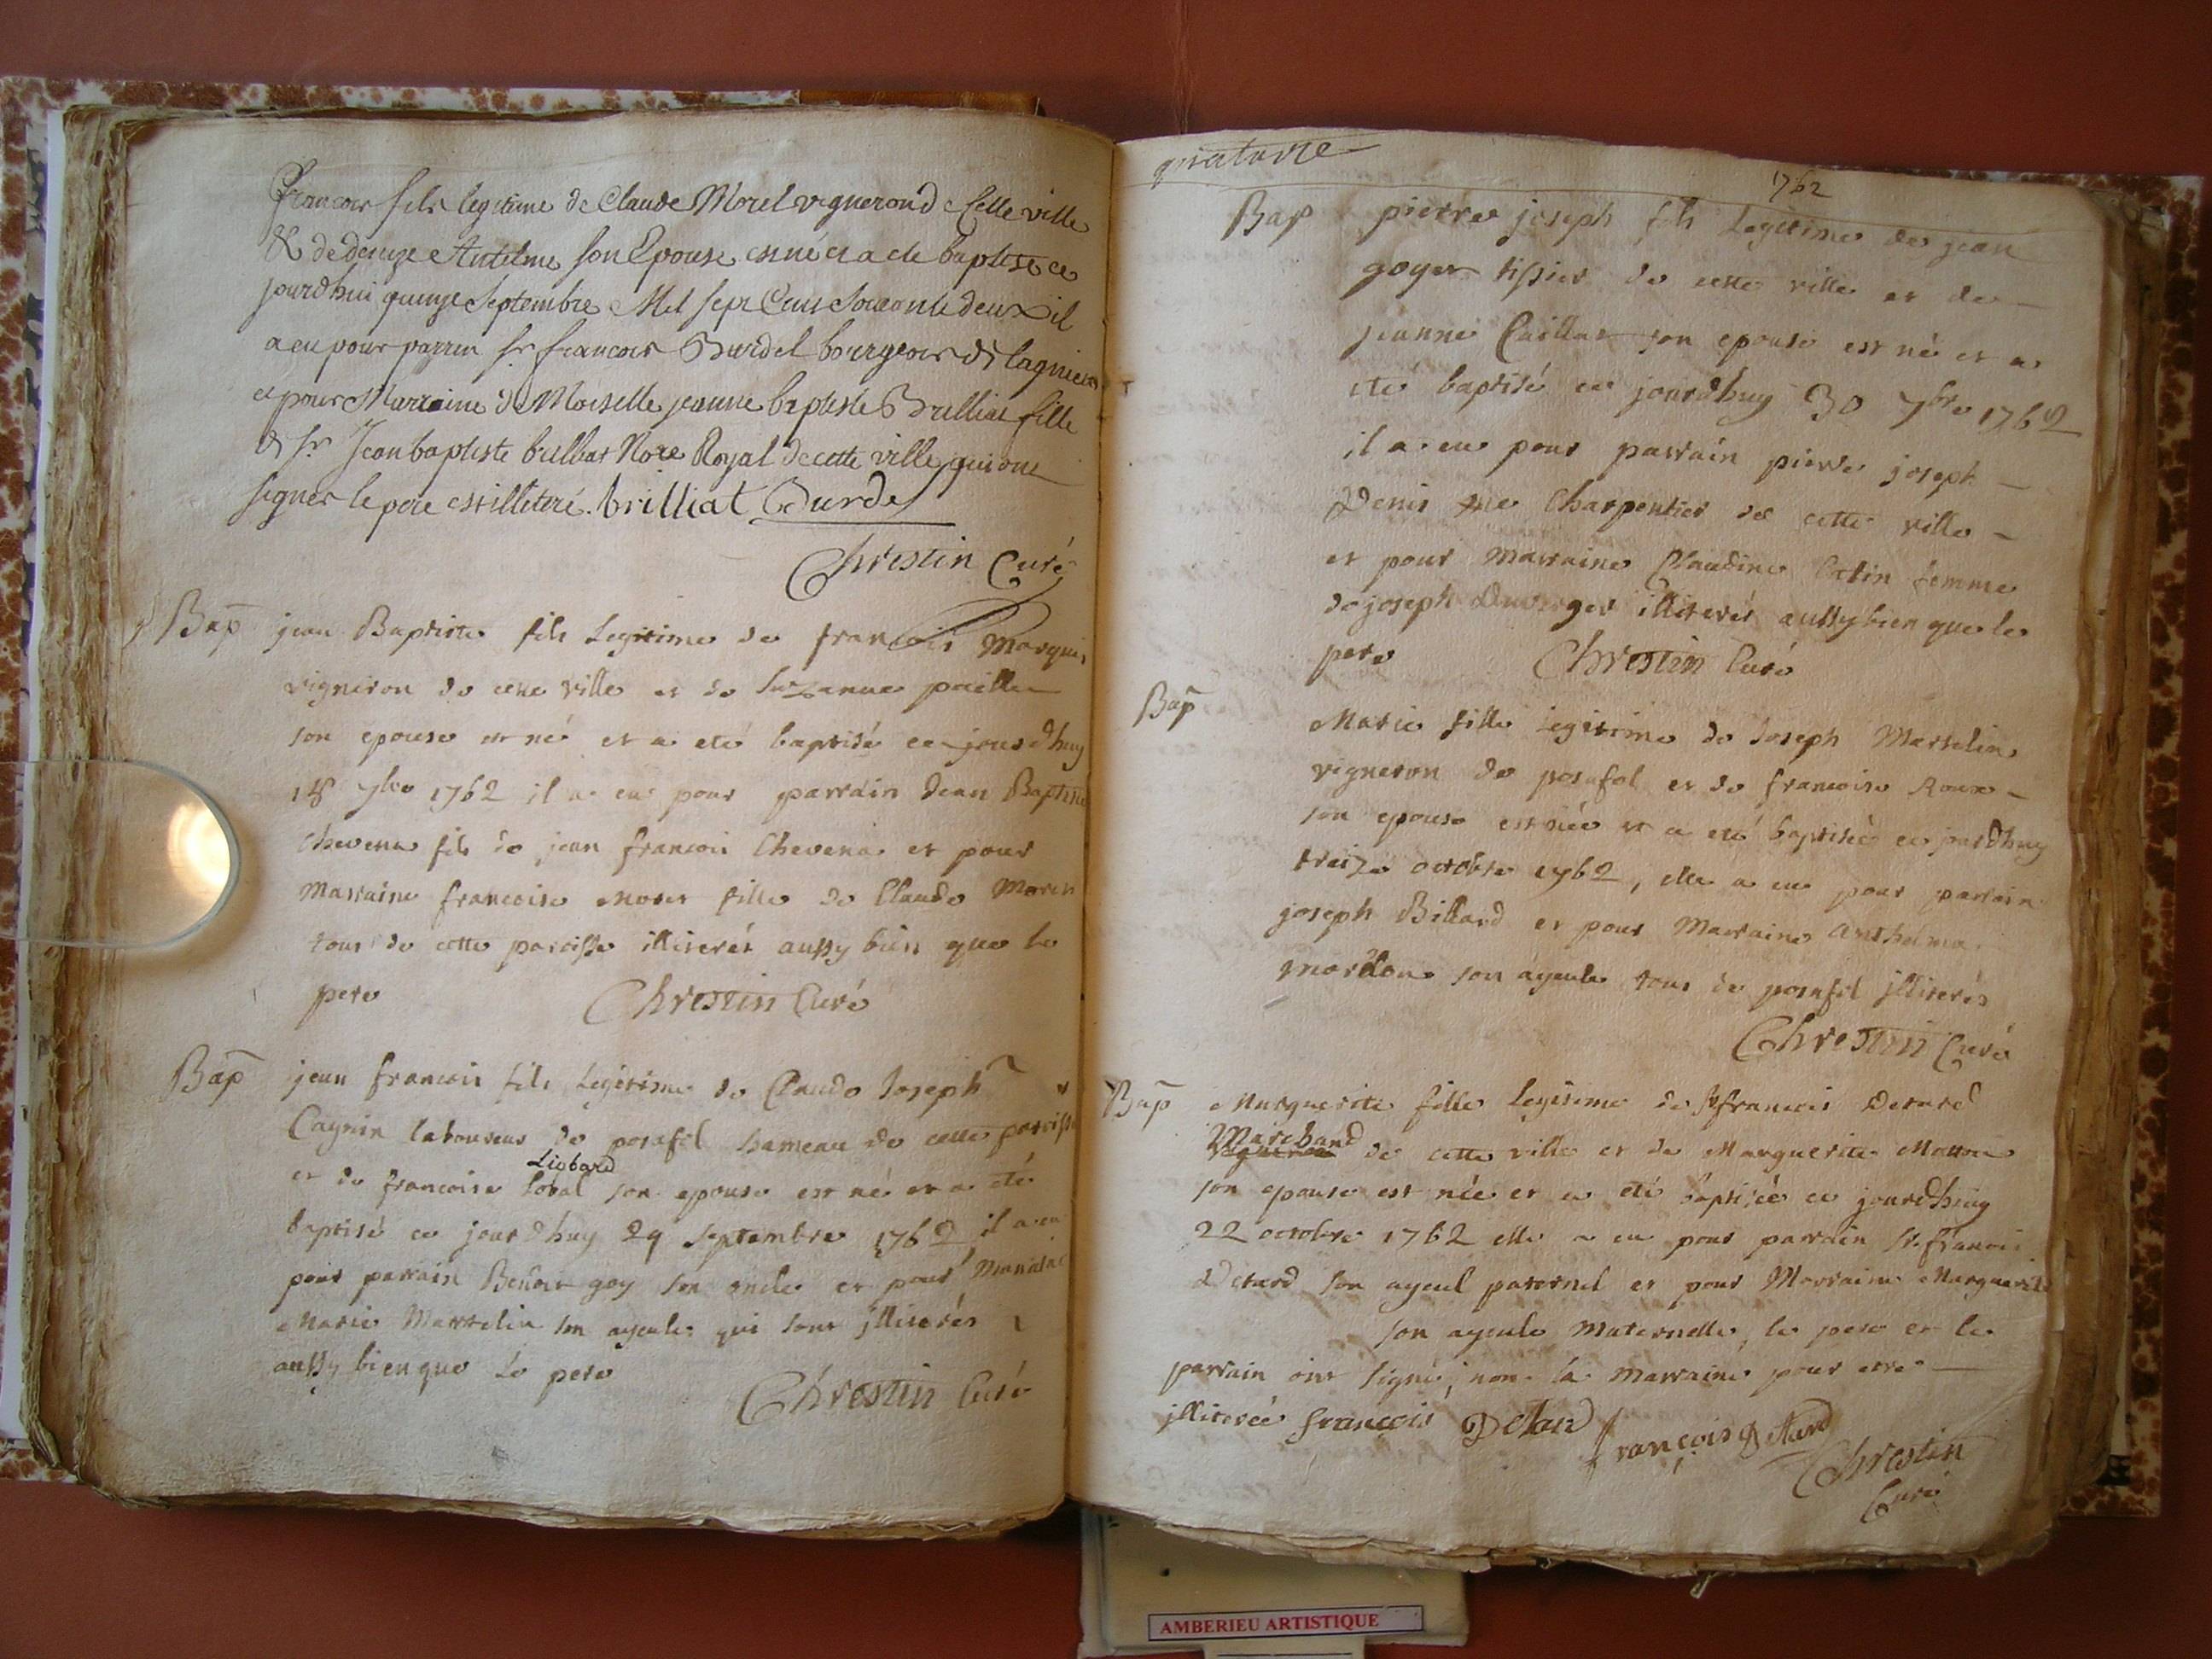 francois fils legitime de Claude Morel vigneron de Cette ville
& de denize Antelme son Epouse est né et a ete baptisé ce
jourdhui quinze Septembre Mil sept Cens Soixante deux il
a eu pour parrin sr francois Burdel bourgeois de lagnieu
et pour Marraine de Moiselle jeanne baptiste Brilliat fille
de sr Jean baptiste brilliat Nore Royal de cette ville qui ont
signés le pere est illeteré. brilliat Burdel
Chrestin Curé
Bap jean Baptiste fils Legitime de francois Marquis
vigneron de cette ville et de Suzanne
son epouse est né et a eté baptisé ce jourdhuy
18 7bre 1762 il a eu pour parrain Jean Baptiste
Chevena fils de jean francois Chevena et pour
Marraine francoise fille de Claude
tous de cette paroisse illiterés aussy bien que le
pere Chrestin Curé
Bap jean francois fils Legitime de Claude Joseph
Cagnin laboureur de posafol hameau de cette paroisse
Liobard
et de francoise son epouse est né et a eté
baptisé ce jourdhuy 29 Septembre 1762 il a eu
pour parrain Benoit goy son oncle et pour Maraine
Marie Marcelin son ayeule qui sont jlliterés
aussy bien que le pere
Chrestin Curé
1762
Bap pierre joseph fils Legitime de jean
goyer tissier de cette ville et de
jeanne Caillat son epouse est né et a
eté baptisé ce jourdhuy 30 7bre 1762
il a eu pour parrain pierre joseph
Denis Charpentier de cette ville
et pour Marraine Claudine femme
de joseph illiterés aussy bien que le
pere Chrestin Curé
Bap
Marie fille legitime de Joseph Marcelin
vigneron de posafol et de francoise Roux
son epouse est née et a eté baptisée ce jourdhuy
treize octobre 1762, elle a eu pour parrain
joseph Billard et pour Marraine anthelma
son ayeule tous de posafol jlliterés
Chrestin Curé
Bap Marguerite fille Legitime de sr francois Detard
Marchand
de cette ville et de Marguerite
son epouse est née et a eté baptisée ce jourdhuy
22 octobre 1762 elle a eu pour parrain sr. francois
Detard son ayeul paternel et pour Marraine Marguerite
son ayeule Maternelle, le pere et le
parrain ont signé, non la Marraine pour etre
jlliterée françois Detard françois Detard
Chrestin
Curé
AMBERIEU ARTISTIQUE